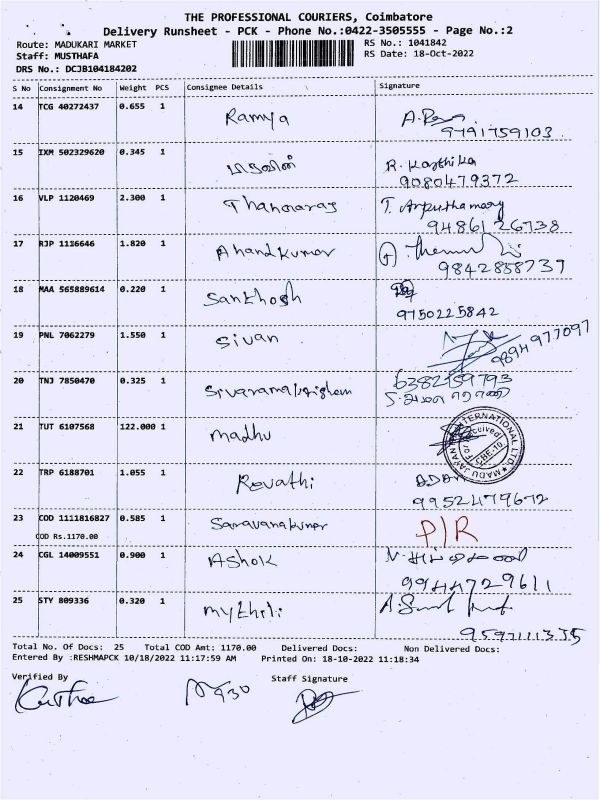 THE PROFESSIONAL COURIERS, Coimbatore
Delivery Runsheet - PCK - Phone No.:0422-3505555 - Page No.:2
Route: MADUKARI MARKET
RS No.: 1041842
Staff: MUSTHAFA
RS Date: 18-Oct-2022
DRS No.: DCJB104184202
S No Consignment No Weight PCS Consignee Details Signature
14 TCG 40272437 0.655 1 Ramya
9791759103
15 IXM 502329620 0.345 1 R. Karthika
9080479372
16 VLP 1120469 2.300 1 Thanaraj T. Arputhamary
9486126738
17 RJP 1136646 1.820 1 Anandkumar
9842858739
18 MAA 565889614 0.220 1 Santhosh
9750225842
19 PNL 7062279 1.550 1 Sivan
9894977097
20 TNJ 7850470 0.325 1
6382159793
21 TUT 6107568 122.000 1 Madhu
22 TRP 6188701 1.055 1 Revathi
9952479672
23 COD 1111816827 0.585 1 Saravanakumar P/R
COD Rs.1170.00
24 CGL 14009551 0.900 1 Ashok
9944729611
25 STY 809336 0.320 1 Mythili
9597111335
Total No. Of Docs: 25 Total COD Amt: 1170.00 Delivered Docs: Non Delivered Docs:
Entered By :RESHMAPCK 10/18/2022 11:17:59 AM Printed On: 18-10-2022 11:18:34
Verified By Staff Signature